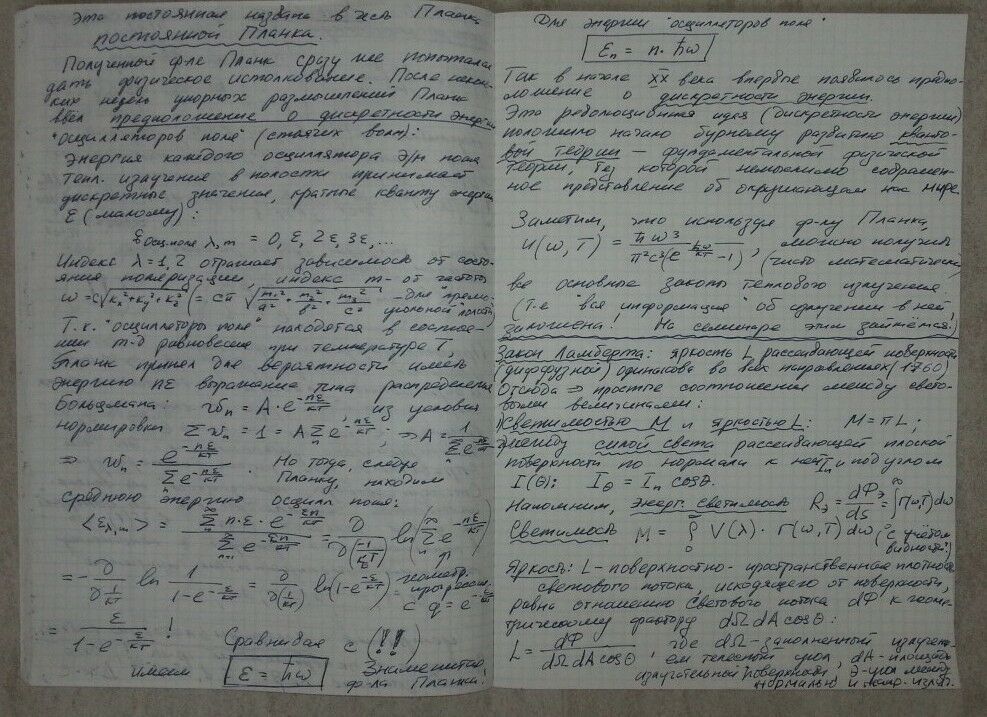 Эта постоянная названа в честь Планка
постоянной Планка.
Полученной ф-ле Планк сразу же попытался
дать физическое истолкование. После
недель упорных размышлений Планк
ввел предположение о дискретности энергии
"осцилляторов поля" (стоячих волн):
Энергия каждого осциллятора Э/м поля
тепл. излучения в полости принимает
дискретные значения, кратные кванту энергии
ε (малому):
ℰ осц. поля λ, m = 0, ε, 2ε, 3ε, ...
Индекс λ=1,2 отражает зависимость от состо-
яния поляризации, индекс m - от частоты
ω = c√(kx² + ky² + kz²) (= cπ √(m₁²/a² + m₂²/b² + m₃²/c²) - для прямо-
угольной полости
Т.к. "осцилляторы поля" находятся в состоя-
нии т-д равновесия при температуре T,
Планк принял для вероятности иметь
энергию nε выражение типа распределения
Больцмана: wn = A·e^(-nε/kT), из условия
нормировки Σ wn = 1 = A Σ e^(-nε/kT); ⇒ A = 1/Σe^(-nε/kT)
⇒ wn = e^(-nε/kT) / Σ e^(-nε/kT). Но тогда, следуя
Планку, находим
среднюю энергию осцилл поля:
<ελ,m> = Σ n·ε·e^(-εn/kT) / Σ e^(-εn/kT) = ∂/∂(-1/kT) ln(Σ e^(-nε/kT))
= -∂/∂(1/kT) ln 1/(1-e^(-ε/kT)) = ∂/∂(1/kT) ln(1-e^(-ε/kT)) = геометр. прогресс. с q = e^(-ε/kT)
= ε/(1-e^(-ε/kT)) ! Сравнивая с (!!)
имеем ε = ħω Знаменитая
ф-ла Планка!
Для энергии "осцилляторов поля"
εn = n·ħω
Так в начале XX века впервые появилось предпо-
ложение о дискретности энергии.
Эта революционная идея (дискретности энергии)
положило начало бурному развитию кванто-
вой теории - фундаментальной физической
теории, без которой немыслимо современ-
ное представление об окружающем нас мире.
Заметим, что используя ф-лу Планка,
u(ω,T) = ħω³ / π²c²(e^(ħω/kT) - 1), можно получить
(чисто математически)
все основные законы теплового излучения.
(Т.е "вся информация" об излучении в ней
заложена! На семинаре этим займётся.)
Закон Ламберта: яркость L рассеивающей поверхности
(диффузной) одинакова во всех направлениях (1760)
Отсюда ⇒ простые соотношения между свето-
выми величинами:
Светимостью M и яркостью L: M = πL;
между силой света рассеивающей плоской
поверхности по нормали к ней In и под углом
I(θ): Iθ = In cosθ.
Напомним, Энерг. Светимость Rэ = dΦэ/dS = ∫ r(ω,T)dω
Светимость M = ∫ V(λ)·r(ω,T)dω (с учётом
видности)
Яркость: L - поверхностно-пространственная плотность
светового потока, исходящего от поверхности,
равна отношению светового потока dΦ к геоме-
трическому фактору dΩ dA cosθ:
L = dΦ / dΩ dA cosθ, где dΩ - заполненный излучен-
ем телесный угол, dA - площадь
излучательной поверхности, θ - угол между
нормалью и напр. излуч.